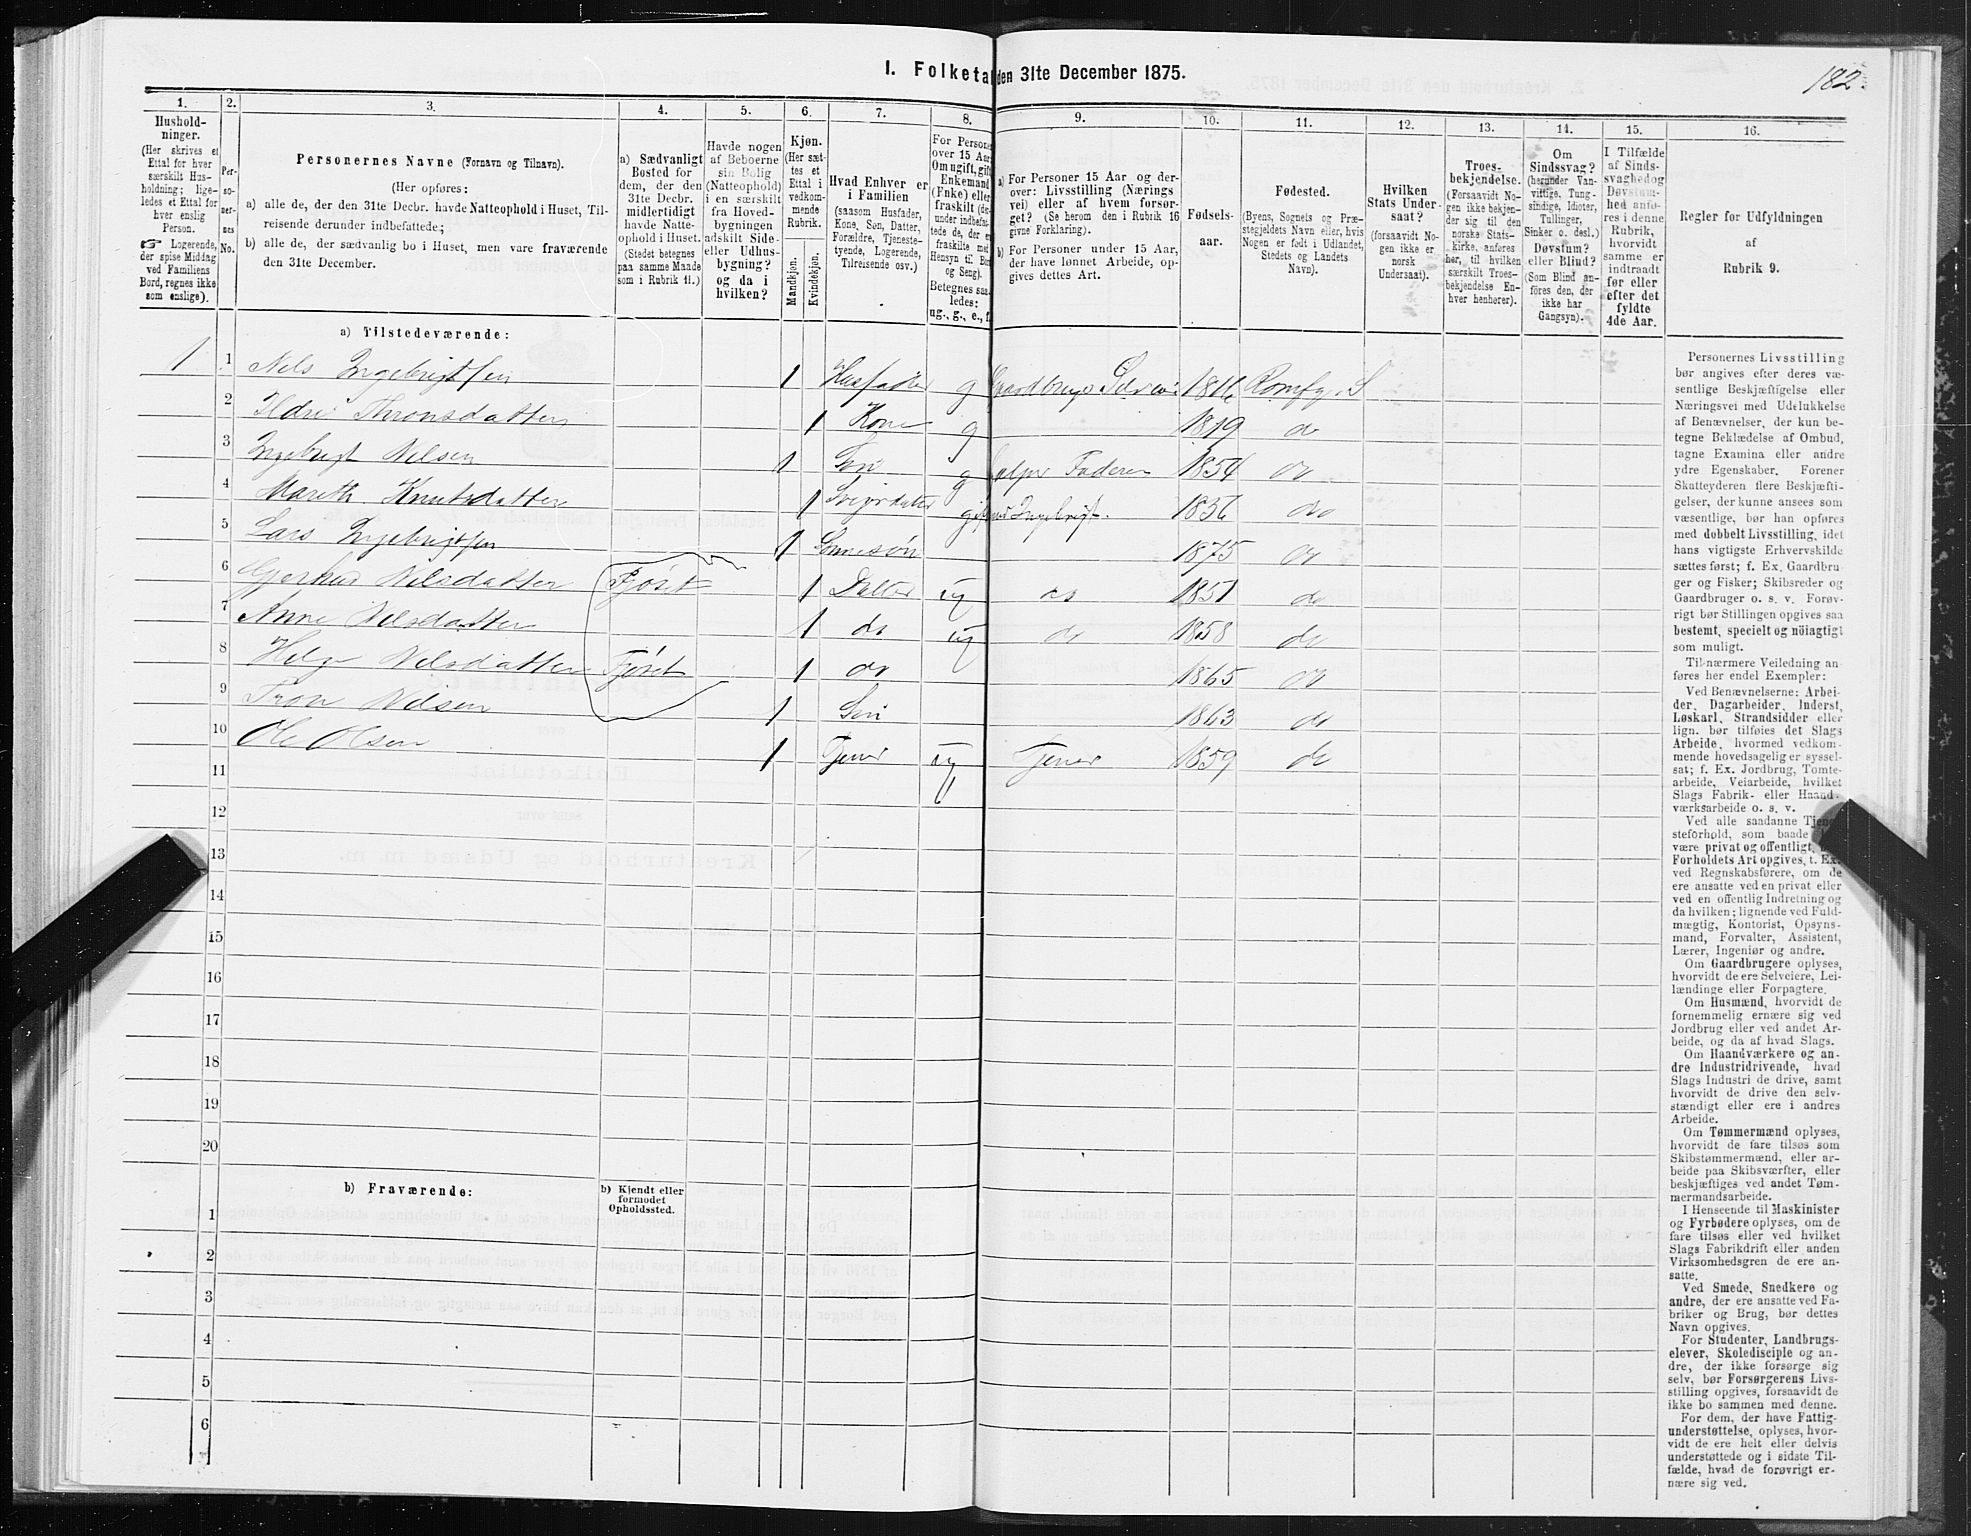 I. Folketa den 31te December 1875.
182
1. 2. 3. 4. 5. 6. 7. 8. 9. 10. 11. 12. 13. 14. 15. 16.
Hushold-
ninger.
(Her skrives et
Ettal for hver
særskilt Hus-
holdning; lige-
ledes et Ettal for
hver enslig
Person.
☞ Logerende,
der spise Middag
ved Familiens
Bord, regnes ikke
som enslige).
Per-
so-
ner-
nes
No.
Personernes Navne (Fornavn og Tilnavn).
(Her opføres:
a) alle de, der den 31te Decbr. havde Natteophold i Huset, Til-
reisende derunder indbefattede;
b) alle de, der sædvanlig bo i Huset, men vare fraværende
den 31te December.
a) Sædvanligt
Bosted for
dem, der den
31te Decbr.
midlertidigt
havde Natte-
ophold i Huset.
(Stedet betegnes
paa samme Maade
som i Rubrik 11.)
Havde nogen
af Beboerne
sin Bolig
(Natteophold)
i en særskilt
fra Hoved-
bygningen
adskilt Side-
eller Udhus-
bygning?
og da i
hvilken?
Kjøn.
(Her sæt-
tes et
Ettal i
vedkom-
mende
Rubrik.
Mandkjøn.
Kvindekjøn.
Hvad Enhver er
i Familien
(saasom Husfader,
Kone, Søn, Datter,
Forældre, Tjeneste-
tyende, Logerende,
Tilreisende osv.)
For Persone
over 15 Aar
Om ugift, gift
Enkemand
(Enke) eller
fraskilt (de-
under indbefat-
tede de, der er
fraskilte med
Hensyn til Bo
og Seng).
Betegnes saa-
ledes:
ug., g., e., f.
a) For Personer 15 Aar og der-
over: Livsstilling (Nærings
vei) eller af hvem forsør-
get? (Se herom den i Rubrik 16
givne Forklaring).
b) For Personer under 15 Aar,
der have lønnet Arbeide, op-
gives dettes Art.
Fødsels-
aar.
Fødested.
(Byens, Sognets og Præ-
stegjeldets Navn eller, hvis
Nogen er født i Udlandet,
Stedets og Landets
Navn).
Hvilken
Stats Under-
saat?
(forsaavidt No-
gen ikke er
norsk
Undersaat).
Troes-
bekjendelse.
(Forsaavidt No-
gen ikke bekjen-
der sig til den
norske Stats-
kirke, anføres
her, til hvilken
særskilt Troes-
bekjendelse En-
hver henhører).
Om
Sindssvag?
(herunder Van-
vittige, Tung-
sindige, Idioter,
Tullinger,
Sinker o. desl.)
Døvstum?
eller Blind?
(Som Blind an-
føres den, der
ikke har
Gangsyn).
I Tilfælde
af Sinds-
svaghed og
Døvstum-
hed anfø-
res i denne
Rubrik,
hvorvidt
samme er
indtraadt
før eller
efter det
fyldte
4de Aar.
Regler for Udfyldningen
af
Rubrik 9.
a) Tilstedeværende:
1 1 Nels Ingebrigtsen 1 Husfader g Gaardbruger Selveier 1816 Romfo S
2 Ildri Thronsdatter 1 Kone g 1819 do
3 Ingebrigt Nelsen 1 Søn g hjelper Faderen 1854 do
4 Mareth Knutsdatter 1 Svigerdater g gift med Ingebrigt. 1856 do
5 Lars Ingebrigtsen 1 Sønnesøn 1875 do
6 Gjertrud Nilsdatter Fjøset 1 Datter ug do 1851 do
7 Anne Nelsdatter 1 do ug do 1858 do
8 Helge Nelsdatter Fjøset 1 do 1865 do
9 Tron Nilsen 1 Søn 1863 do
10 Ole Olsen 1 Tjener ug Tjener 1859 do
11
12
13
14
15
16
17
18
19
20
b) Fraværende:
b) Kjendt eller
formodet
Opholdssted.
1
2
3
4
5
6
Personernes Livsstilling
bør angives efter deres væ-
sentlige Beskjæftigelse eller
Næringsvei med Udelukkelse
af Benævnelser, der kun be-
tegne Beklædelse af Ombud,
tagne Examina eller andre
ydre Egenskaber. Forener
Skatteyderen flere Beskjæfti-
gelser, der kunne ansees som
væsentlige, bør han opføres
med dobbelt Livsstilling, idet
hans vigtigste Erhvervskilde
sættes først; f. Ex. Gaardbru-
ger og Fisker; Skibsreder og
Gaardbruger o. s. v. Forøv-
rigt bør Stillingen opgives saa
bestemt, specielt og nöiagtigt
som muligt.
Til nærmere Veiledning an-
føres her endel Exempler:
Ved Benævnelserne: Arbei-
der, Dagarbeider, Inderst,
Løskarl, Strandsidder eller
lign. bør tilføies det Slags
Arbeide, hvormed vedkom-
mende hovedsagelig er syssel-
sat; f. Ex. Jordbrug, Tomte-
arbeide, Veiarbeide, hvilket
Slags Fabrik- eller Haand-
værksarbeide o. s. v.
Ved alle saadanne Tjene-
steforhold, som baade
være privat og offentligt,
Forholdets Art opgives, t. Ex.
ved Regnskabsførere, om de
ere ansatte ved en privat eller
ved en offentlig Indretning og
da hvilken; lignende ved Fuld-
mægtig, Kontorist, Opsyns-
mand, Forvalter, Assistent,
Lærer, Ingeniør og andre.
Om Gaardbrugere oplyses,
hvorvidt de ere Selveiere, Lei-
lændinge eller Forpagtere.
Om Husmænd, hvorvidt de
fornemmelig ernære sig ved
Jordbrug eller ved andet Ar-
beide, og da af hvad Slags.
Om Haandværkere og an-
dre Industridrivende, hvad
Slags Industri de drive, samt
hvorvidt de drive den selv-
stændigt eller ere i andres
Arbeide.
Om Tømmermænd oplyses,
hvorvidt de fare tilsøs som
Skibstømmermænd, eller ar-
beide paa Skibsværfter, eller
beskjæftiges ved andet Tøm-
mermandsarbeide.
I Henseende til Maskinister
og Fyrbødere oplyses, om de
fare tilsøs eller ved hvilket
Slags Fabrikdrift eller anden
Virksomhedsgren de ere an-
satte.
Ved Smede, Snedkere og
andre, der ere ansatte ved Fa-
briker og Brug, bør dettes
Navn opgives.
For Studenter, Landbrugs-
elever, Skoledisciple og an-
dre, der ikke forsørge sig
selv, bør Forsørgerens Livs-
stilling opgives, forsaavidt de
ikke bo sammen med denne.
For dem, der have Fattig-
understøttelse, oplyses, hvor-
vidt de ere helt eller delvis
understøttede og i sidste Til-
fælde, hvad de forøvrigt er-
nære sig ved.